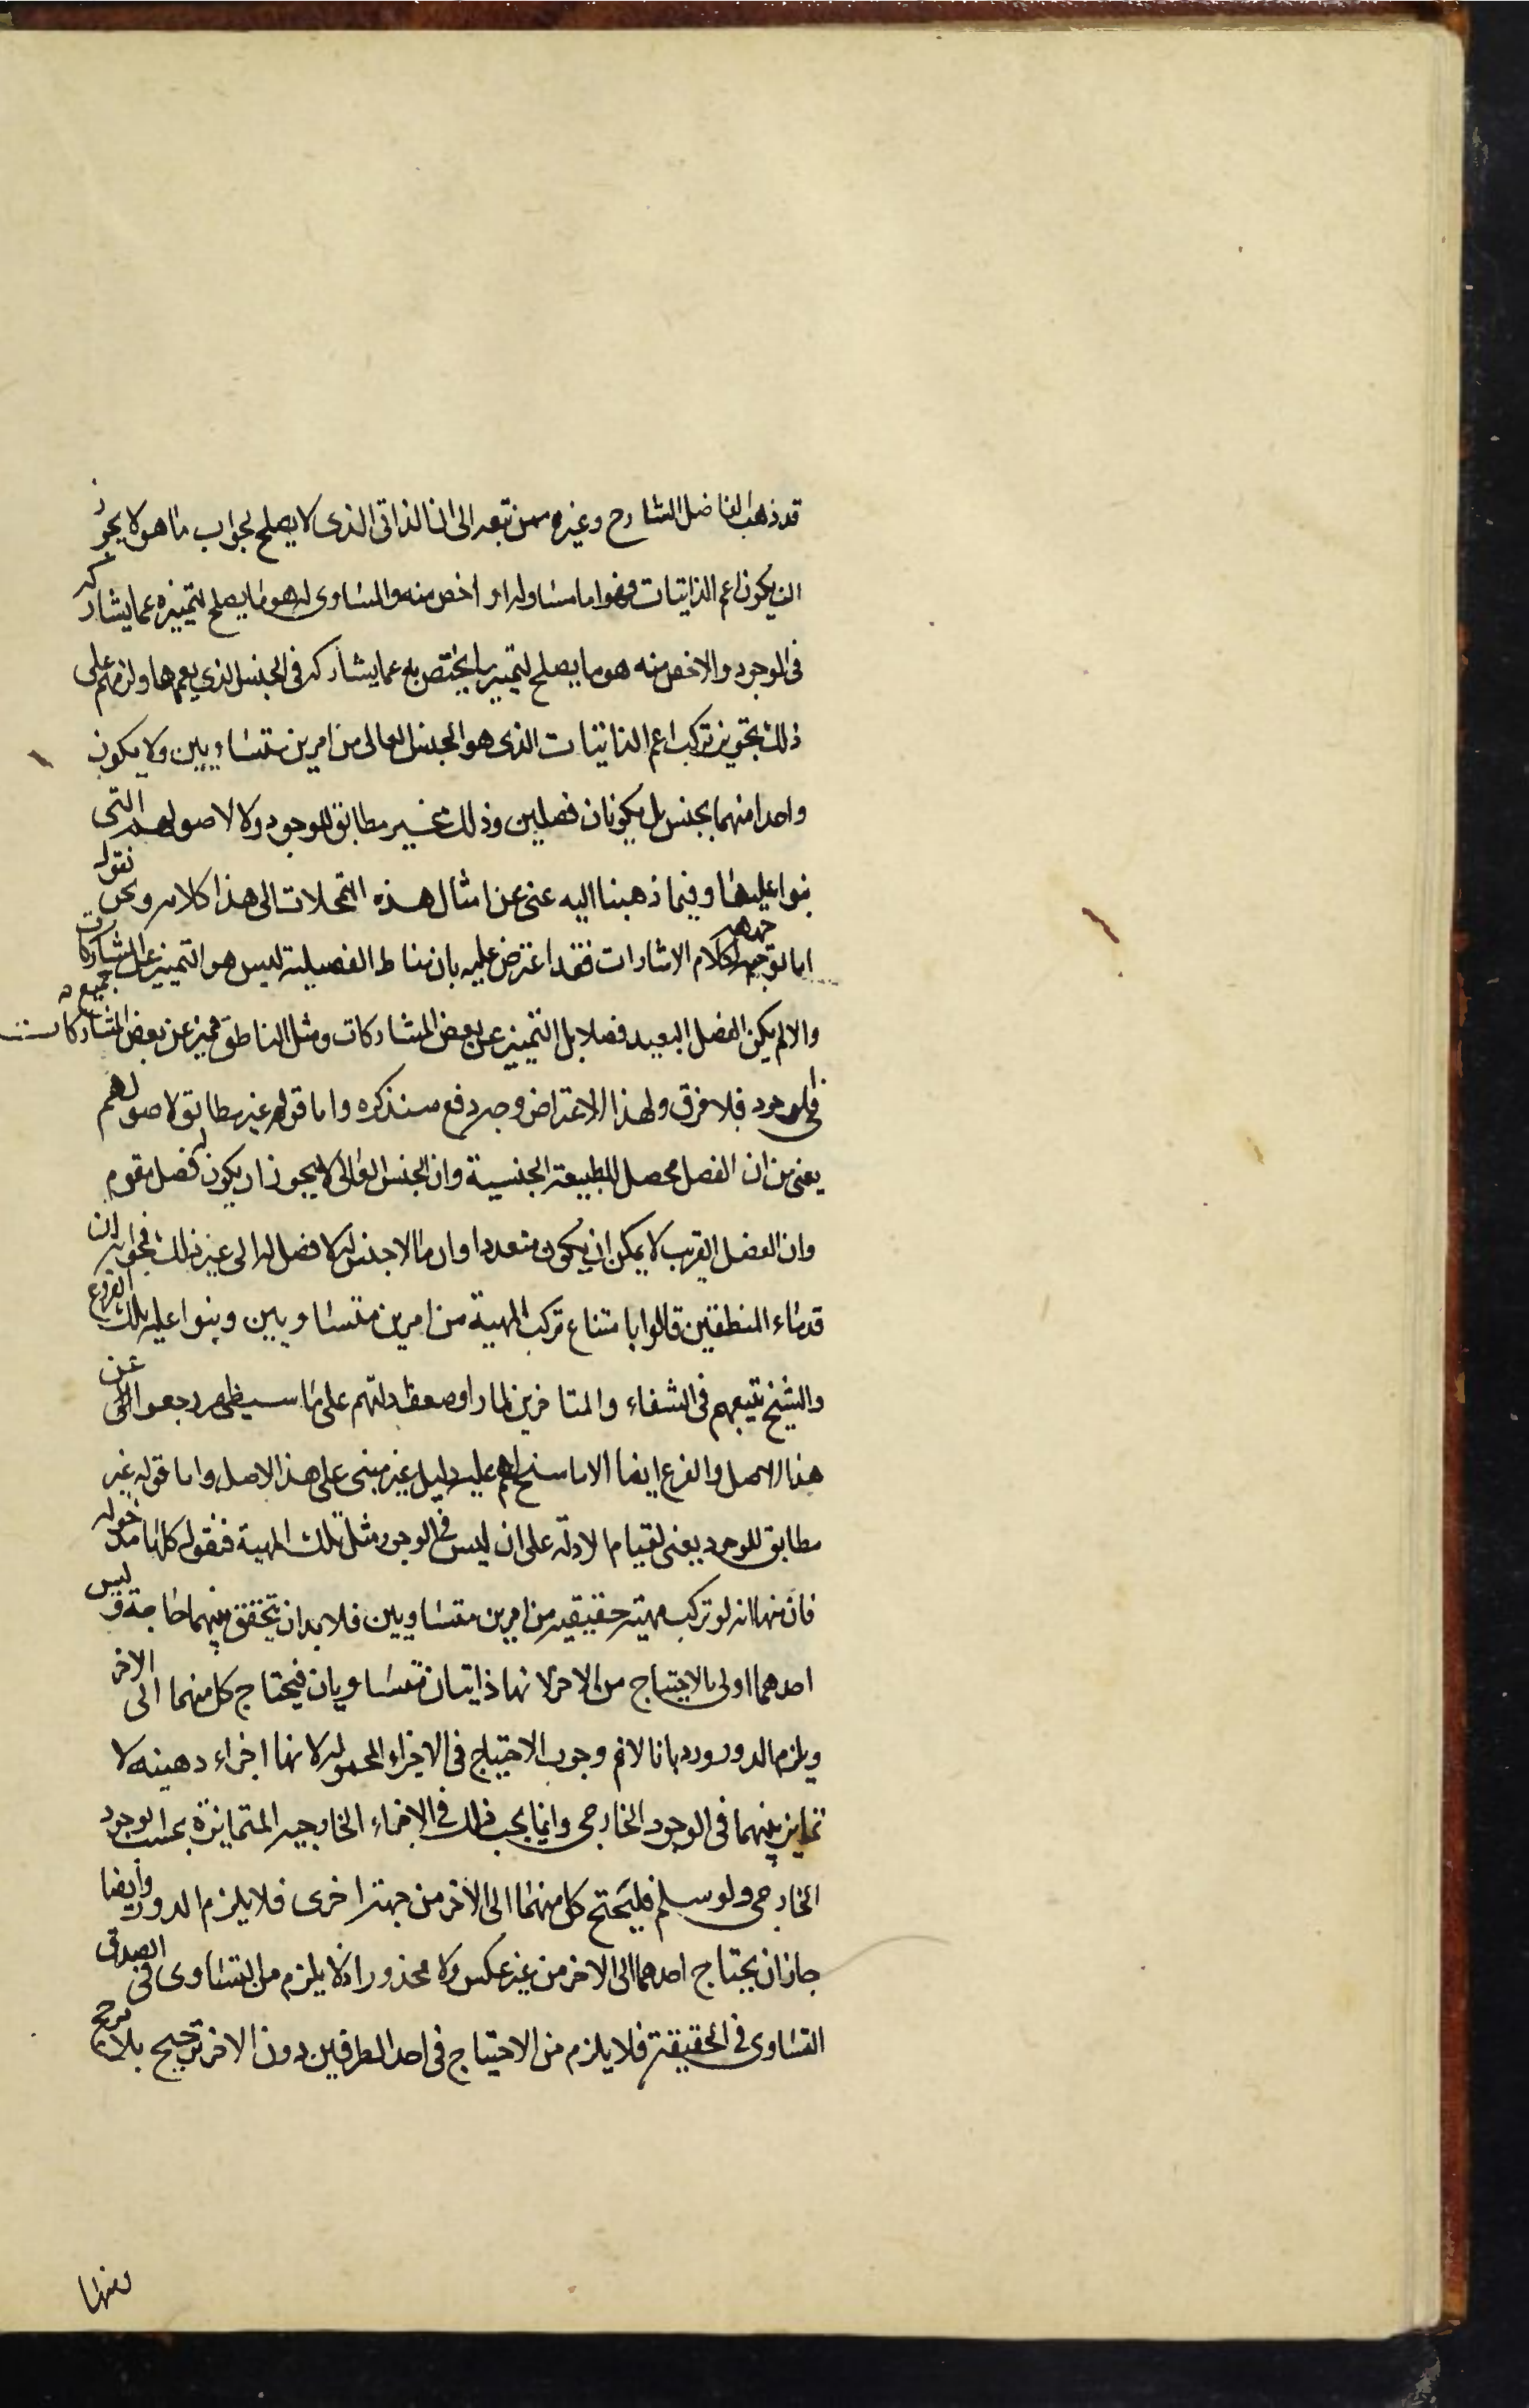 قد ذهب الفاضل الشارح وغيره ممن تبعه الى ان الذاتى الذى لا يصلح لجواب ما هو لا يجوز
ان يكون اعم الذاتيات فهو اما مساو له او اخص منه والمساوى له هو ما يصلح لتميزه عما يشاركه
فى الوجود والاخص منه هو ما يصلح لتميز ما يختص به عما يشاركه فى الجنس الذي يعمها ولزمهم على
ذلك تجويز تركب اعم الذاتيات الذى هو الجنس العالى من امرين متساويين ولا يكون
واحدا منهما بجنس بل يكونان فصلين وذلك غير مطابق للوجود ولا لاصولهم التى
بنوا عليها وفيما ذهبنا اليه غنى عن امثال هذه التمحلات الى هذا كلامه ونحن نقول
اما توجيهه لكلام الاشارات فقد اعترض عليه بان مناط الفصيلية ليس هو التميز عن المشاركات
والا لم يكن الفصل البعيد فصلا بل التميز عن بعض المشاركات ومثل الناطق مميز عن بعض المشاركات
فى الوجود فلا فرق ولهذا الاعتراض وجه دفع سنذكره واما قوله غير مطابق لاصولهم
يعنى من ان الفصل محصل للطبيعة الجنسية وان الجنس العالى لا يجوز ان يكون له فصل مقوم
وان الفصل القريب لا يمكن ان يكون متعددا وان ما لا جنس له لا فصل له الى غير ذلك فجوابه ان
قدماء المنطقين قالوا بامتناع تركب المهية من امرين متساويين وبنوا عليه تلك الفروع
والشيخ تتبعهم فى الشفاء والمتاخرين لما راوا ضعف ادلتهم على ما سيظهر رجعوا عن
هذا الاصل والفرع ايضا الا ما سنح لهم عليه دليل غير مبنى على هذا الاصل واما قوله غير
مطابق للوجود يعنى لقيام الادلة على ان ليس فى الوجود مثل تلك المهية فنقول كلها مدخوله
فان منها انه لو تركب مهية حقيقيه من امرين متساويين فلا بد ان يتحقق بينهما حاجة وليس
احدهما اولى بالاحتياج من الاخر لانهما ذاتيان متساويان فيحتاج كل منهما الى الاخر
ويلزم الدور ورد بانا لا نم وجوب الاحتياج فى الاجزاء المحموله لانها اجزاء ذهنيه لا
تمايز بينهما فى الوجود الخارجى وانما يجب ذلك فى الاجزاء الخارجيه المتمايزة بحسب الوجود
الخارجى ولو سلم فليحتج كل منهما الى الاخر من جهة اخرى فلا يلزم الدور وايضا
جاز ان يحتاج احدهما الى الاخر من غير عكس ولا محذور اذ لا يلزم من التساوى فى الصدق
التساوى فى الحقيقة فلا يلزم من الاحتياج فى احد الطرفين دون الاخر ترجيح بلا مرجح
ومنها